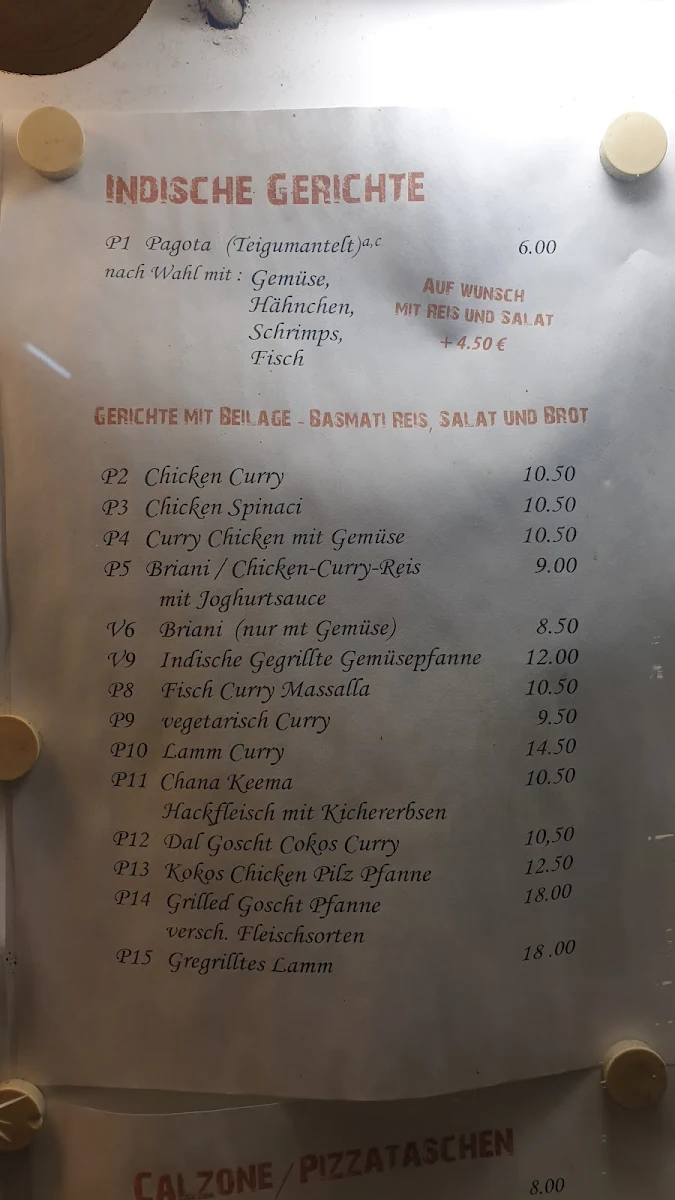 INDISCHE GERICHTE
P1 Pagota (Teigumantelt)a,c 6.00
nach Wahl mit : Gemüse,
Hähnchen,
Schrimps,
Fisch
AUF WUNSCH
MIT REIS UND SALAT
+ 4.50 €
GERICHTE MIT BEILAGE - BASMATI REIS, SALAT UND BROT
P2 Chicken Curry 10.50
P3 Chicken Spinaci 10.50
P4 Curry Chicken mit Gemüse 10.50
P5 Briani / Chicken-Curry-Reis 9.00
mit Joghurtsauce
V6 Briani (nur mt Gemüse) 8.50
V9 Indische Gegrillte Gemüsepfanne 12.00
P8 Fisch Curry Massalla 10.50
P9 vegetarisch Curry 9.50
P10 Lamm Curry 14.50
P11 Chana Keema 10.50
Hackfleisch mit Kichererbsen
P12 Dal Goscht Cokos Curry 10,50
P13 Kokos Chicken Pilz Pfanne 12.50
P14 Grilled Goscht Pfanne 18.00
versch. Fleischsorten
P15 Gregrilltes Lamm 18.00
CALZONE / PIZZATASCHEN
8.00